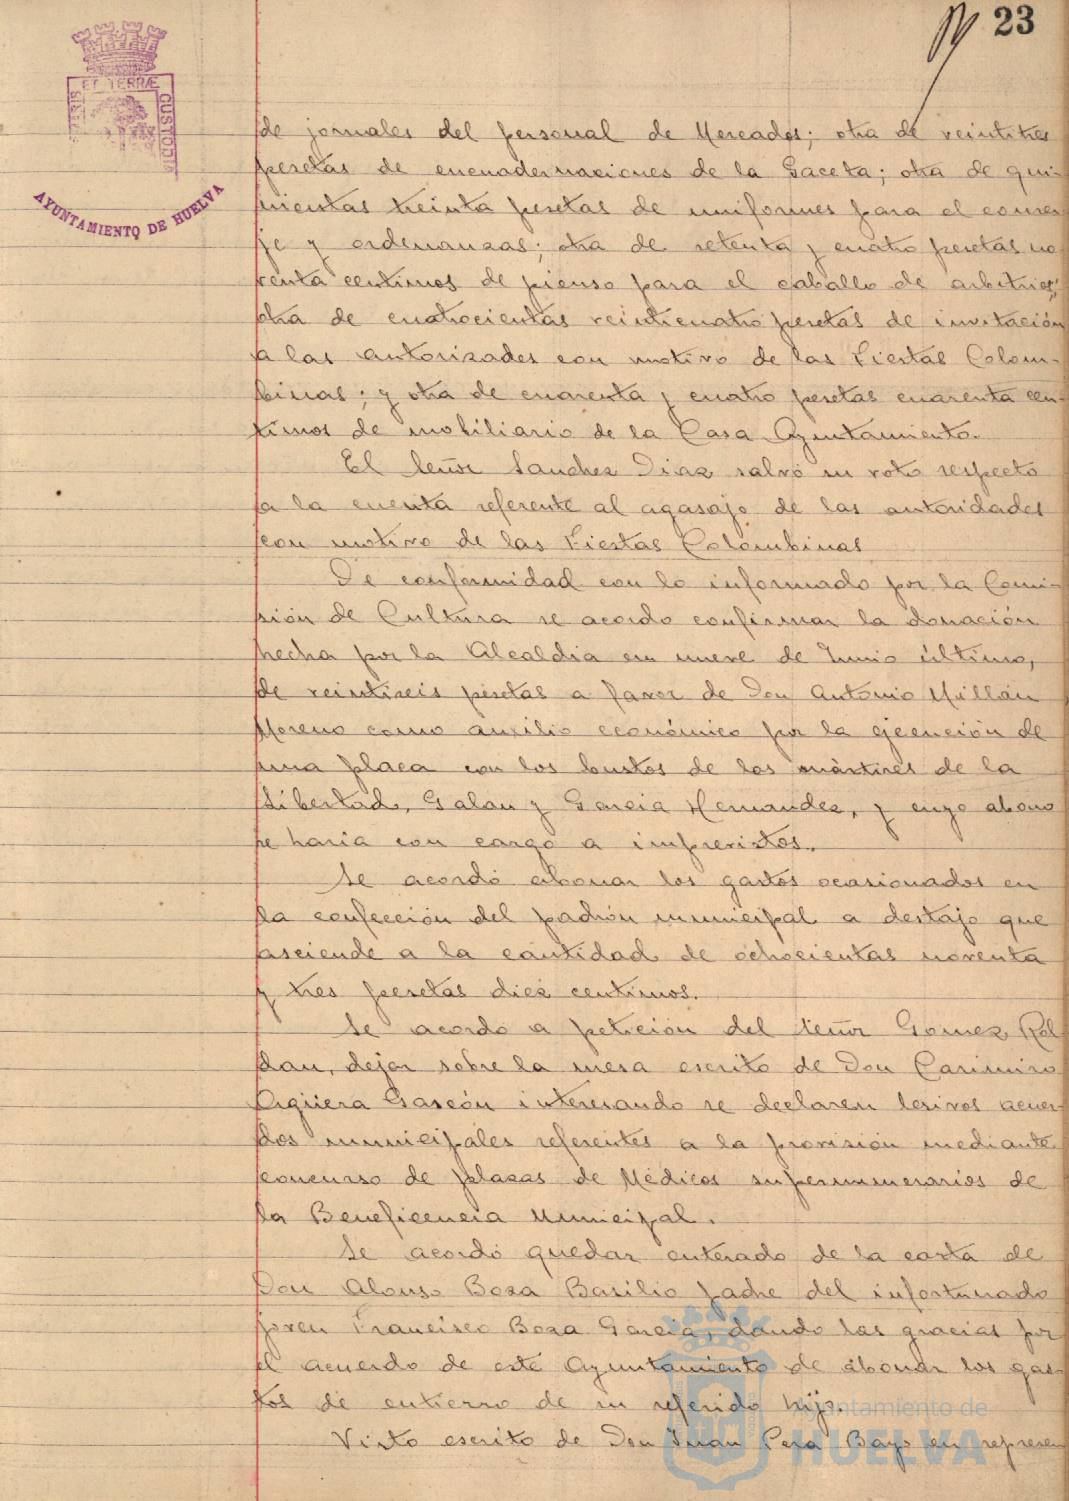 23
PORTUS MARIS ET TERRÆ CUSTODIA
AYUNTAMIENTO DE HUELVA
de jornales del personal de Mercados; otra de veintitres
pesetas de encuadernaciones de la Gaceta; otra de qui-
nientas treinta pesetas de uniformes para el conser-
je y ordenanzas; otra de setenta y cuatro pesetas no-
venta centimos de pienso para el caballo de arbitrios;
otra de cuatrocientas veinticuatro pesetas de invitación
a las autorizades con motivo de las Fiestas Colom-
binas; y otra de cuarenta y cuatro pesetas cuarenta cen-
timos de mobiliario de la Casa Ayuntamiento.
El Señor Sanchez Diaz salvó su voto respecto
a la cuenta referente al agasajo de las autoridades
con motivo de las Fiestas Colombinas
De conformidad con lo informado por la Comi-
sión de Cultura se acordo confirmar la donación
hecha por la Alcaldia en nueve de Junio último,
de veintiseis pesetas a favor de Don Antonio Millán
Moreno como auxilio económico por la ejecución de
una placa con los bustos de los mártires de la
Libertad, Galan y Garcia Hernandez, y cuyo abono
se haria con cargo a imprevistos.
Se acordó abonar los gastos ocasionados en
la confección del padrón municipal a destajo que
asciende a la cantidad de ochocientas noventa
y tres pesetas diez centimos.
Se acordo a petición del Señor Gomez Rol-
dan, dejar sobre la mesa escrito de Don Casimiro
Argüera Gascón interesando se declaren lesivos acuer-
dos municipales referentes a la provisión mediante
concurso de plazas de Médicos supernumerarios de
la Beneficencia Municipal.
Se acordó quedar enterado de la carta de
Don Alonso Boza Basilio padre del infortunado
joven Francisco Boza Garcia, dando las gracias por
el acuerdo de este Ayuntamiento de abonar los gas-
tos de entierro de su referido hijo.
Visto escrito de Don Juan Pera Bayo en represen
Ayuntamiento de
HUELVA